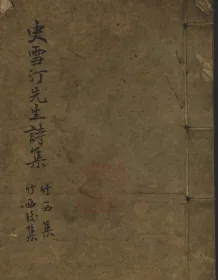 史雪汀先生詩集
竹西集
竹西後集